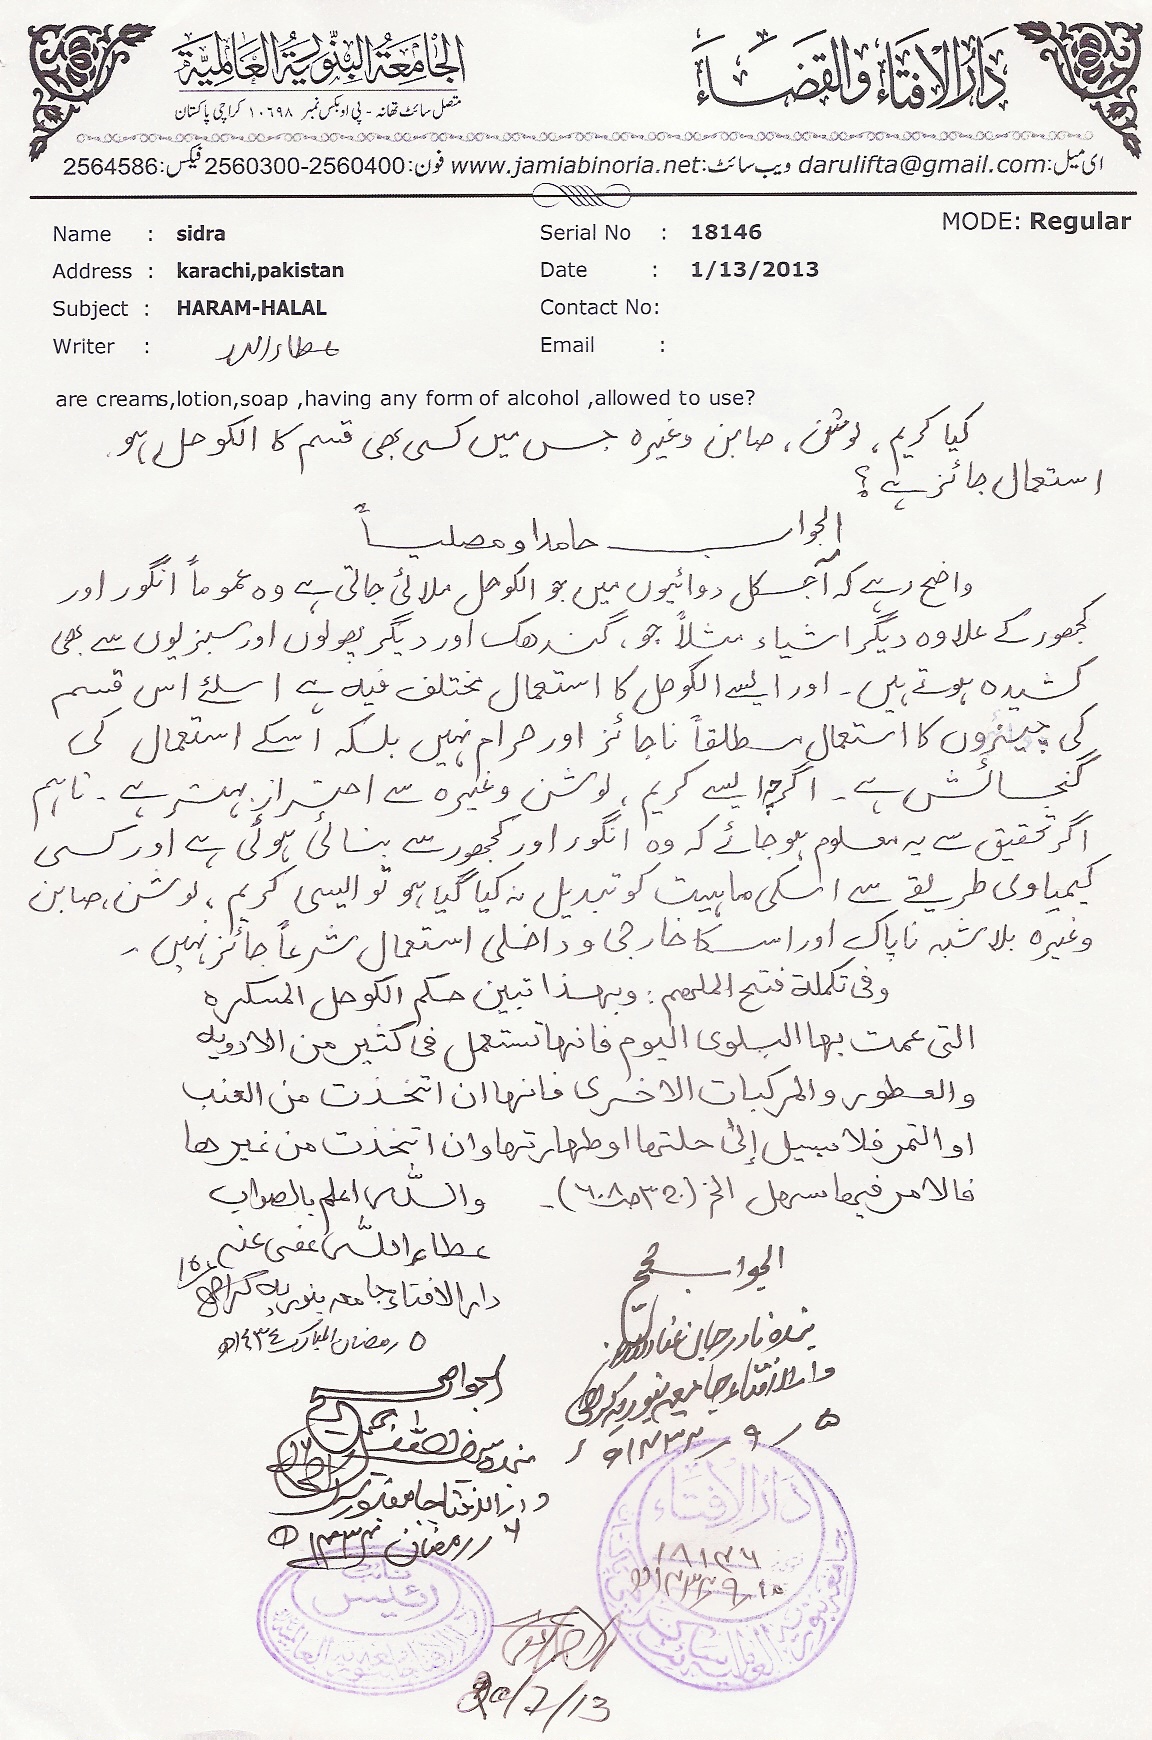 دَارُالاِفتَاء وَالقَضَاء
الجَامِعَةُ البِنّورِيَةُ العَالَمِيَّة
متصل سائٹ تھانہ - پی او بکس نمبر ۱۰۶۹۸ کراچی پاکستان
ای میل:darulifta@gmail.com ویب سائٹ:www.jamiabinoria.net فون:2560300-2560400 فیکس:2564586
MODE: Regular
Name : sidra Serial No : 18146
Address : karachi,pakistan Date : 1/13/2013
Subject : HARAM-HALAL Contact No:
Writer : عطاءاللہ Email :
are creams,lotion,soap ,having any form of alcohol ,allowed to use?
کیا کریم، لوشن، صابن وغیرہ جس میں کسی بھی قسم کا الکوحل ہو
استعمال جائز ہے؟
الجواب حامدا ومصلیاً
واضح رہے کہ آجکل دوائیوں میں جو الکوحل ملائی جاتی ہے وہ عموماً انگور اور
کھجور کے علاوہ دیگر اشیاء مثلاً جو، گندھک اور دیگر پھولوں اور سبزیوں سے بھی
کشیدہ ہوتے ہیں۔ اور ایسے الکوحل کا استعمال مختلف فیہ ہے اسلئے اس قسم
کی چیزوں کا استعمال مطلقاً ناجائز اور حرام نہیں بلکہ اسکے استعمال کی
گنجائش ہے۔ اگرچہ ایسے کریم، لوشن وغیرہ سے احتراز بہتر ہے۔ تاہم
اگر تحقیق سے یہ معلوم ہوجائے کہ وہ انگور اور کھجور سے بنائی ہوئی ہے اور کسی
کیمیاوی طریقے سے اسکی ماہیت کو تبدیل نہ کیا گیا ہو تو ایسی کریم، لوشن، صابن
وغیرہ بلاشبہ ناپاک اور اسکا خارجی و داخلی استعمال شرعاً جائز نہیں۔
وفی تکملة فتح الملہم: وبهذا تبین حکم الکوحل المسکرہ
التی عمت بہا البلوی الیوم فانہا تستعمل فی کثیر من الادویہ
والعطور والمرکبات الاخری فانہا ان اتخذت من العنب
او التمر فلا سبیل إلیٰ حلتہا او طہارتہا وان اتخذت من غیرہا
فالامر فیہا سہل الخ (ج۳ ص۶۰۸)۔ واللہ اعلم بالصواب
عطاءاللہ عفی عنہ
دارالافتاء جامعہ بنوریہ کراچی
۵ رمضان المبارک ۱۴۳۴ھ
الجواب صحیح
بندہ نادر جان
دارالافتاء جامعہ بنوریہ کراچی
۵ ر ۹ ر ۱۴۳۴ھ
الجواب صحیح
بندہ
دارالافتاء جامعہ بنوریہ
۶ ر رمضان ۱۴۳۴ھ
دَارُالاِفتَاء
۱۸۱۴۶
۱۰/۹/۱۴۳۴ھ
نائب
رئیس
20/7/13